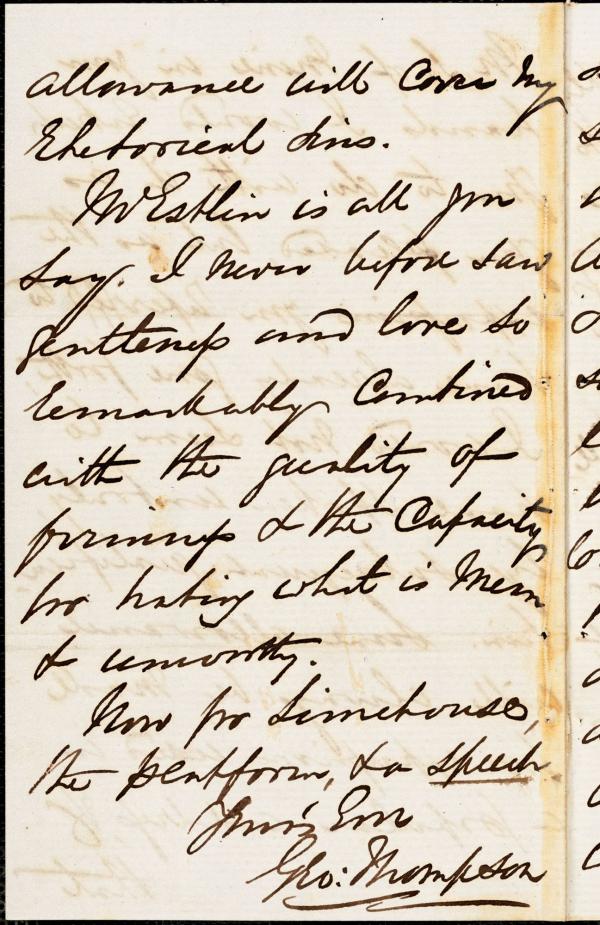 allowance will cover my
Rhetorical sins.
Mr Estlin is all you
say. I never before saw
gentleness and love so
remarkably combined
with the quality of
firmness & the capacity
for hating what is mean
& unworthy.
Now for Limehouse,
the platform, & a speech
Yours Ever
Geo: Thompson